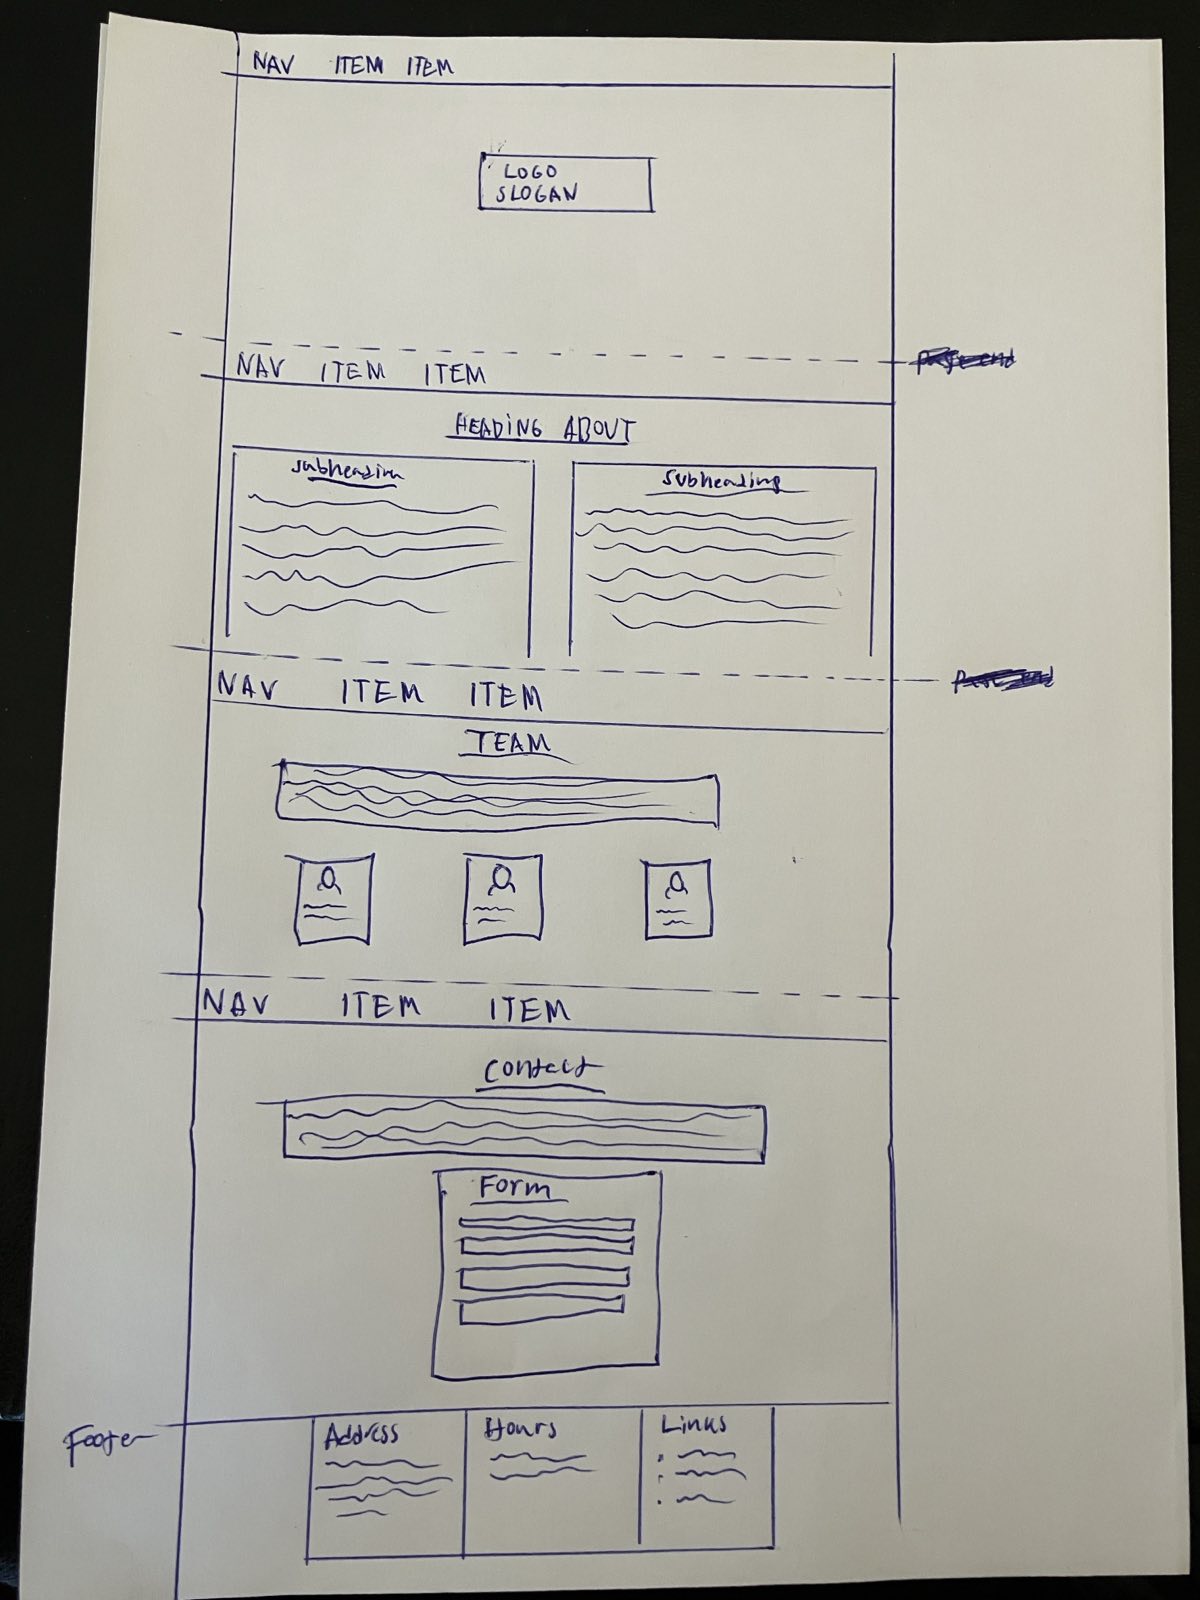 NAV ITEM ITEM
LOGO
SLOGAN
NAV ITEM ITEM
HEADING ABOUT
Subheading
Subheading
NAV ITEM ITEM
TEAM
NAV ITEM ITEM
Contact
Form
Footer
Address
Hours
Links